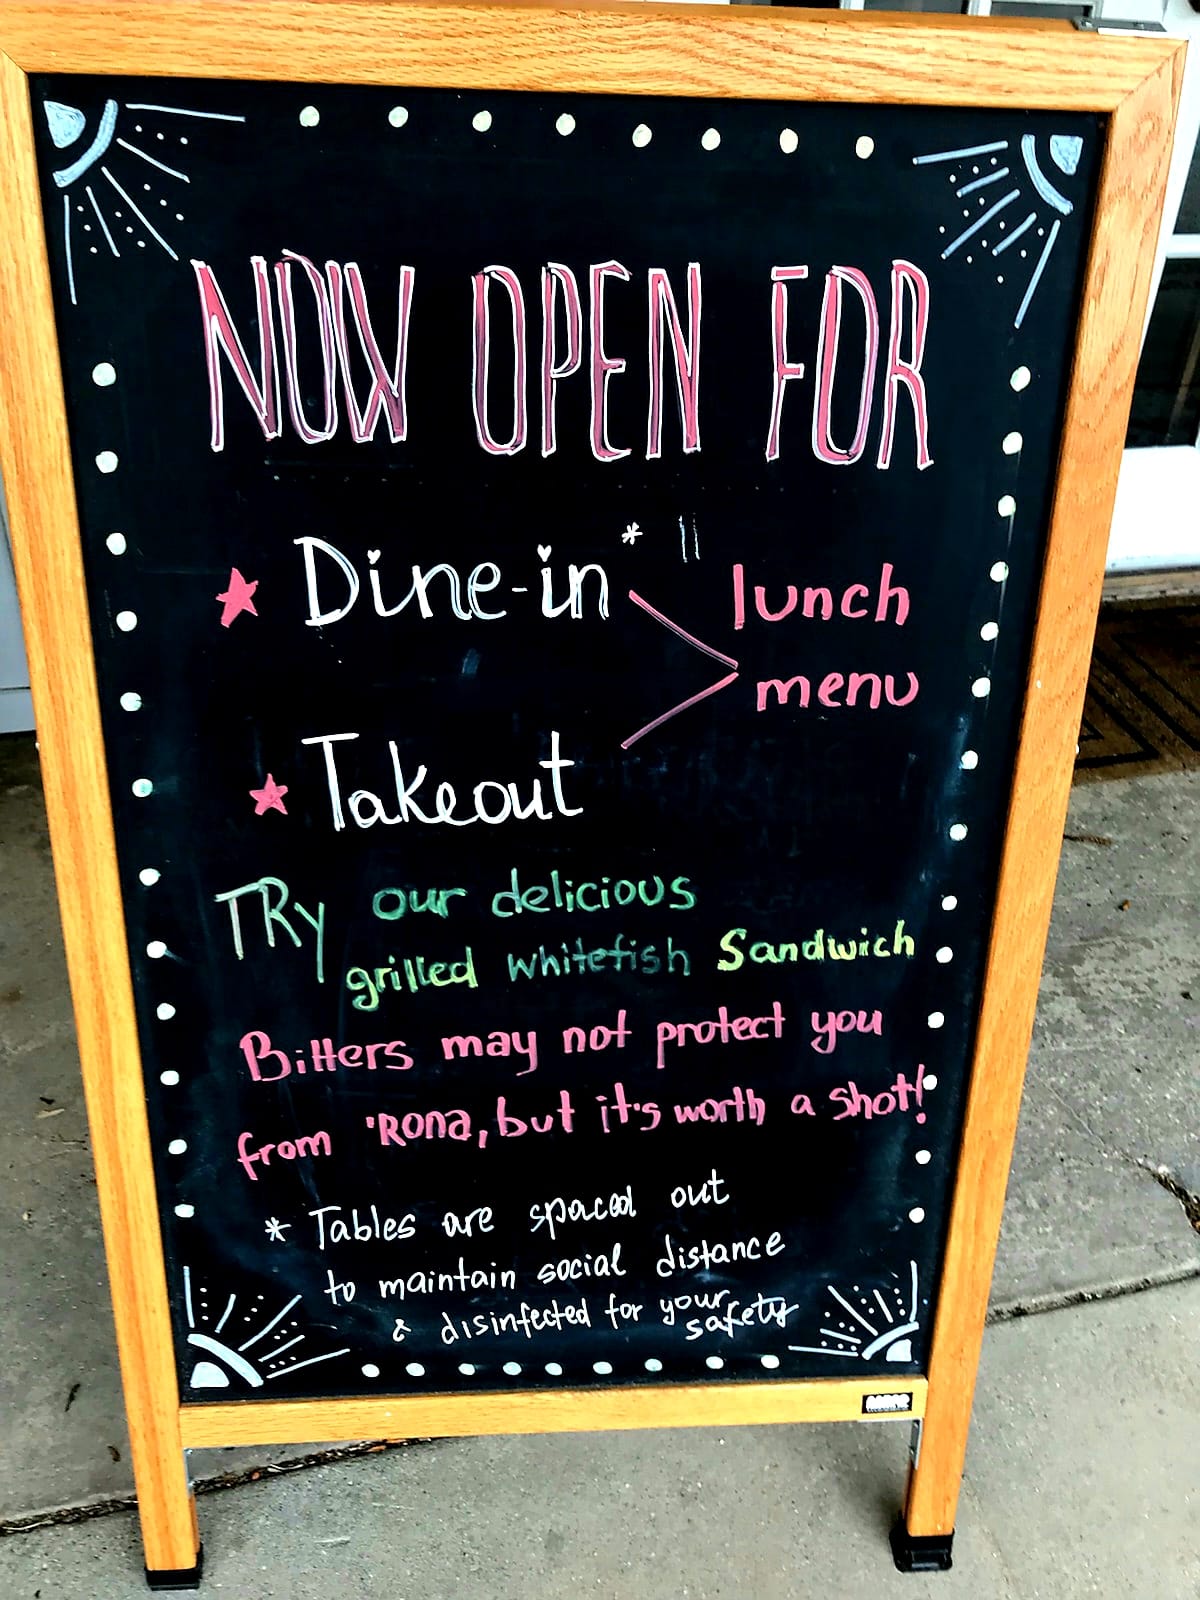 NOW OPEN FOR
Dine-in * lunch
menu
Takeout
TRy our delicious
grilled whitefish Sandwich
Bitters may not protect you
from 'Rona, but it's worth a shot!
* Tables are spaced out
to maintain social distance
& disinfected for your
safety